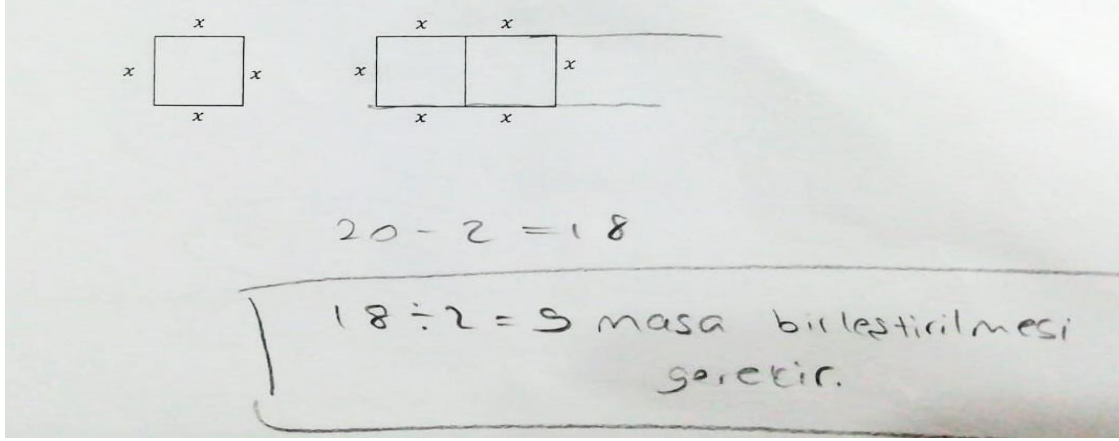 x x x
x x x x
x x x
20 - 2 = 18
18 ÷ 2 = 9 masa birleştirilmesi
gerekir.